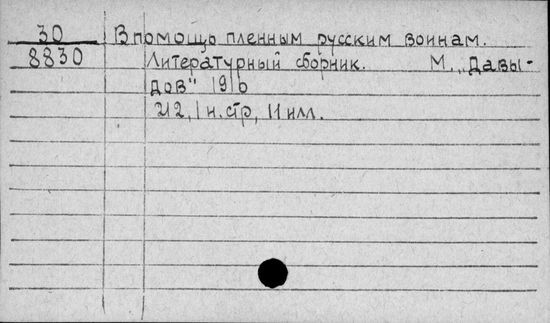 30 В помощь пленным русским воинам.
8830 Литературный сборник. М., „Давы-
дов" 1916
212, 1 н. стр, 11 илл.